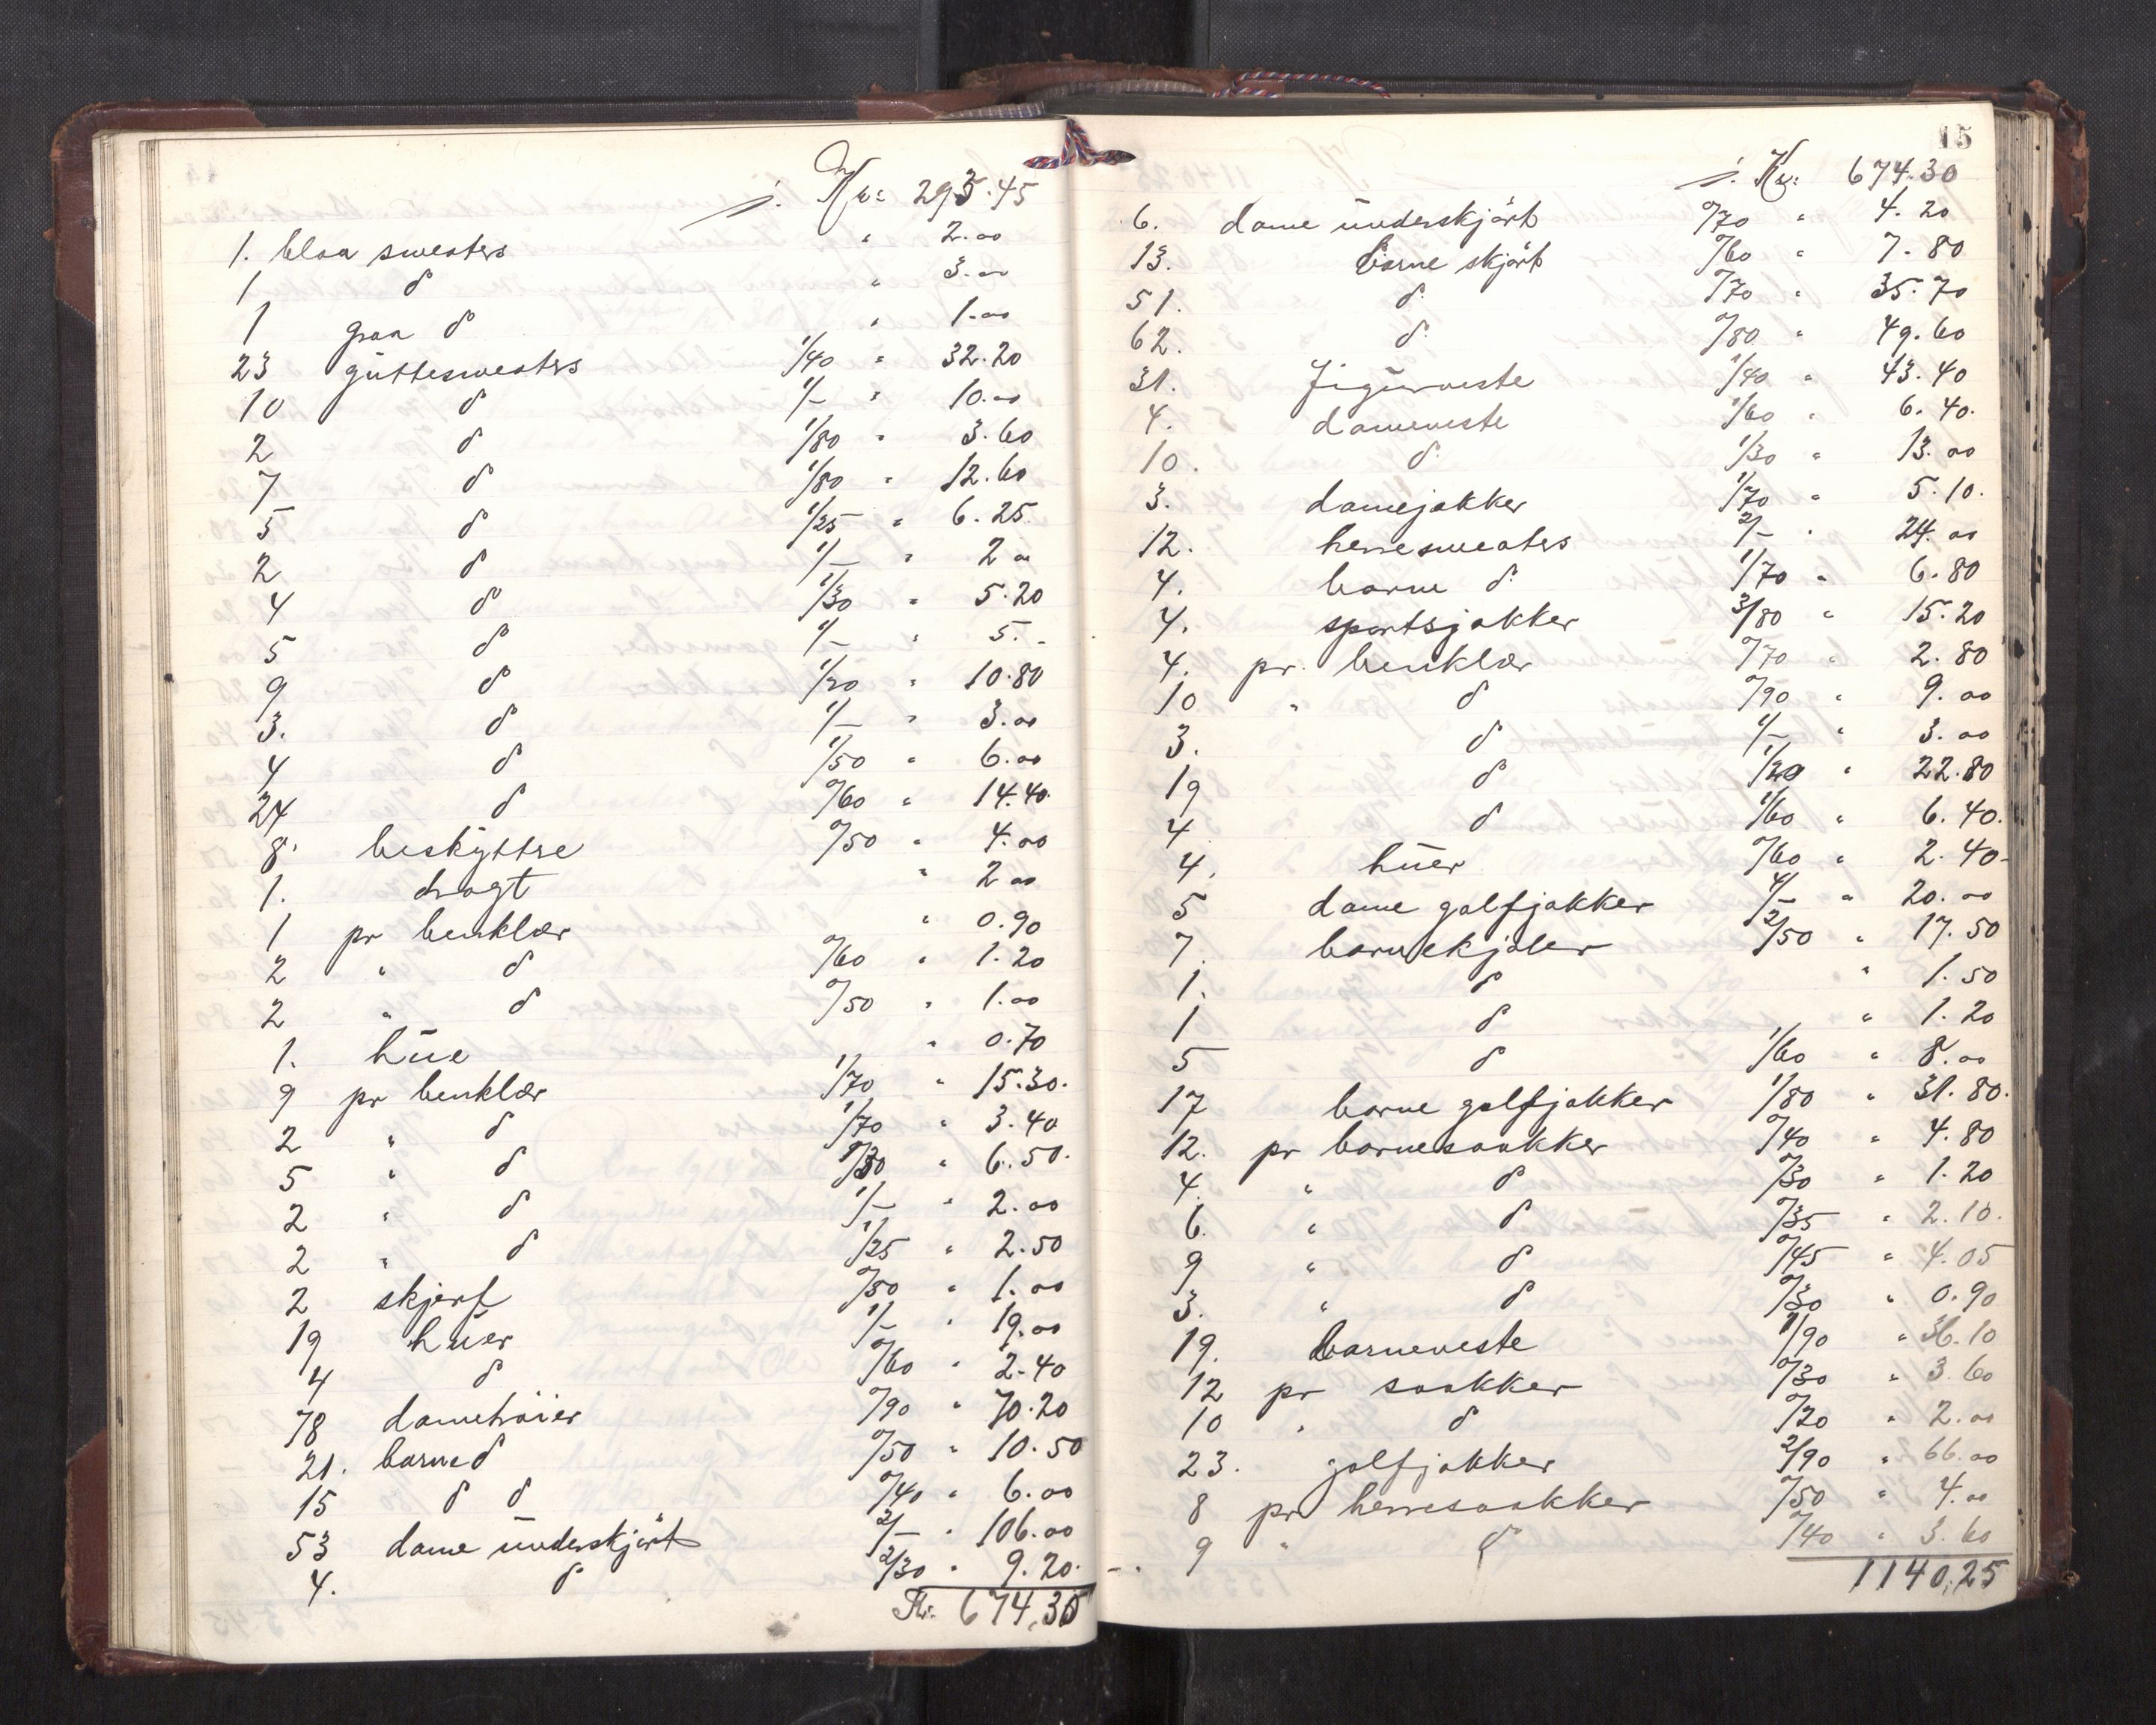 /. Kr: 293.45
1. blaa sweaters " 2.00
1 do " 3.00
1 graa do " 1.00
23 guttesweaters 1/40 " 32.20
10 do 1/- " 10.00
2 do 1/80 " 3.60
7 do 1/80 " 12.60
5 do 1/25 " 6.25
2 do 1/- " 2 00
4 do 1/30 " 5.20
5 do 1/- " 5.-
9 do 1/20 " 10.80
3. do 1/- " 3.00
4 do 1/50 " 6.00
24 do 0/60 " 14.40.
8. beskyttre 0/50 " 4.00
1. dragt " 2 00
1 pr benklær " 0.90
2 " do 0/60 " 1.20
2 " do 0/50 " 1.00
1. hue " 0.70
9 pr benklær 1/70 " 15.30.
2 " do 1/70 " 3.40
5 " do 1/30 " 6.50.
2 " do 1/- " 2.00
2 " do 1/25 " 2.50
2 skjerf 0/50 " 1.00
19 huer 1/- " 19.00
4 do 0/60 " 2.40
78 dametrøier 0/90 " 70.20
21. barne do 0/50 " 10.50
15 do do 0/40 " 6.00
53 dame underskjørt 2/- " 106.00
4. do 2/30 " 9.20.
Kr. 674,30
15
/. Kr: 674.30
6. dame underskjørt 0/70 " 4.20
13. barne skjørt 0/60 " 7.80
51. do 0/70 " 35.70
62. do 0/80 " 49.60
31. Figurveste 1/40 " 43.40
4. dameveste 1/60 " 6.40.
10. do 1/30 " 13.00
3. damejakker 1/70 " 5.10.
12. herresweaters 2/- " 24.00
4. barne do 1/70 " 6.80
4. sportsjakker 3/80 " 15.20
4. pr. benklær 0/70 " 2.80
10 " do 0/90 " 9.00
3. do 1/- " 3.00
19 do 1/20 " 22.80
4 do 1/60 " 6.40.
4. huer 0/60 " 2.40-
5 dame golfjakker 4/- " 20.00
7. barnekjoler 2/50 " 17.50
1. do " 1.50
1 do " 1.20
5 do 1/60 " 8.00
17 barne golfjakker 1/80 " 31.80.
12. pr barnesokker 0/40 " 4.80
4. " do 0/30 " 1.20
6. " do 0/35 " 2.10.
9 " do 0/45 " 4.05
3. " do 0/30 " 0.90
19. barneveste 1/90 " 36.10
12 pr sokker 0/30 " 3.60
10 " do 0/20 " 2.00
23. golfjakker 2/90 " 66.00
8 pr herresokker 0/50 " 4.00
9 " do 0/40 " 3.60
1140,25